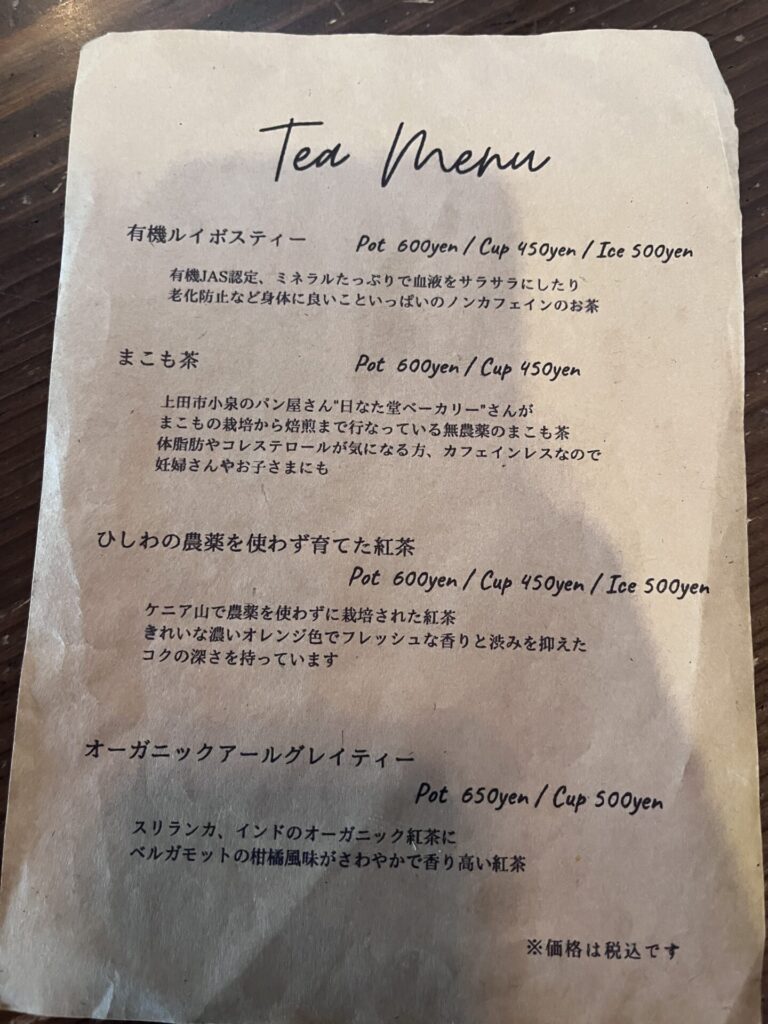 Tea Menu
有機ルイボスティー Pot 600yen / Cup 450yen / Ice 500yen
有機JAS認定、ミネラルたっぷりで血液をサラサラにしたり
老化防止など身体に良いこといっぱいのノンカフェインのお茶
まこも茶 Pot 600yen / Cup 450yen
上田市小泉のパン屋さん"日なた堂ベーカリー"さんが
まこもの栽培から焙煎まで行なっている無農薬のまこも茶
体脂肪やコレステロールが気になる方、カフェインレスなので
妊婦さんやお子さまにも
ひしわの農薬を使わず育てた紅茶
Pot 600yen / Cup 450yen / Ice 500yen
ケニア山で農薬を使わずに栽培された紅茶
きれいな濃いオレンジ色でフレッシュな香りと渋みを抑えた
コクの深さを持っています
オーガニックアールグレイティー
Pot 650yen / Cup 500yen
スリランカ、インドのオーガニック紅茶に
ベルガモットの柑橘風味がさわやかで香り高い紅茶
※価格は税込です